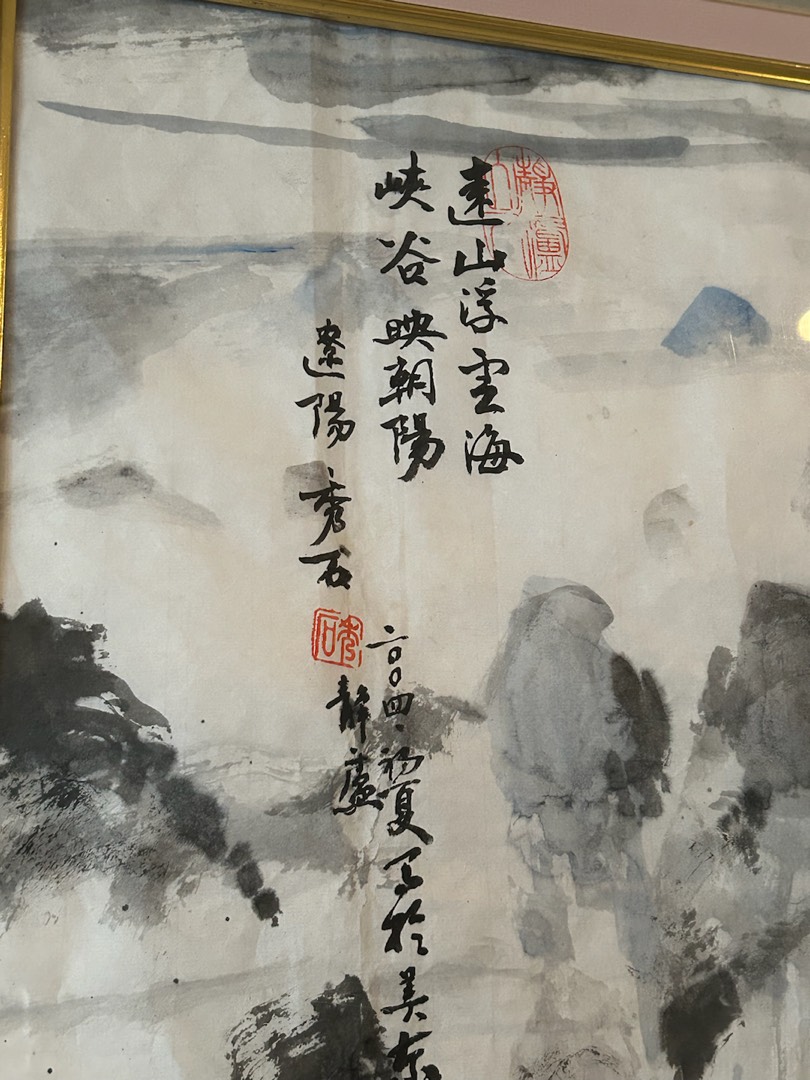 遠山浮雲海
峽谷映朝陽
遼陽秀石
秀石
二〇〇四、初夏寫於美东
靜廬
靜廬